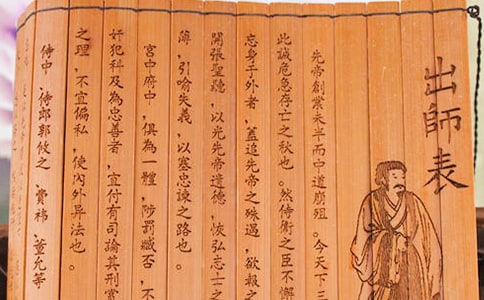 出師表
先帝創業未半而中道崩殂。今天下三
此誠危急存亡之秋也。然侍衛之臣不懈
忘身于外者，蓋追先帝之殊遇，欲報之
開張聖聽，以光先帝遺德，恢弘志士之
薄，引喻失義，以塞忠諫之路也。
宮中府中，俱為一體，陟罰臧否，不
奸犯科及為忠善者，宜付有司論其刑賞
之理，不宜偏私，使內外異法也。
侍中、侍郎郭攸之、費禕、董允等